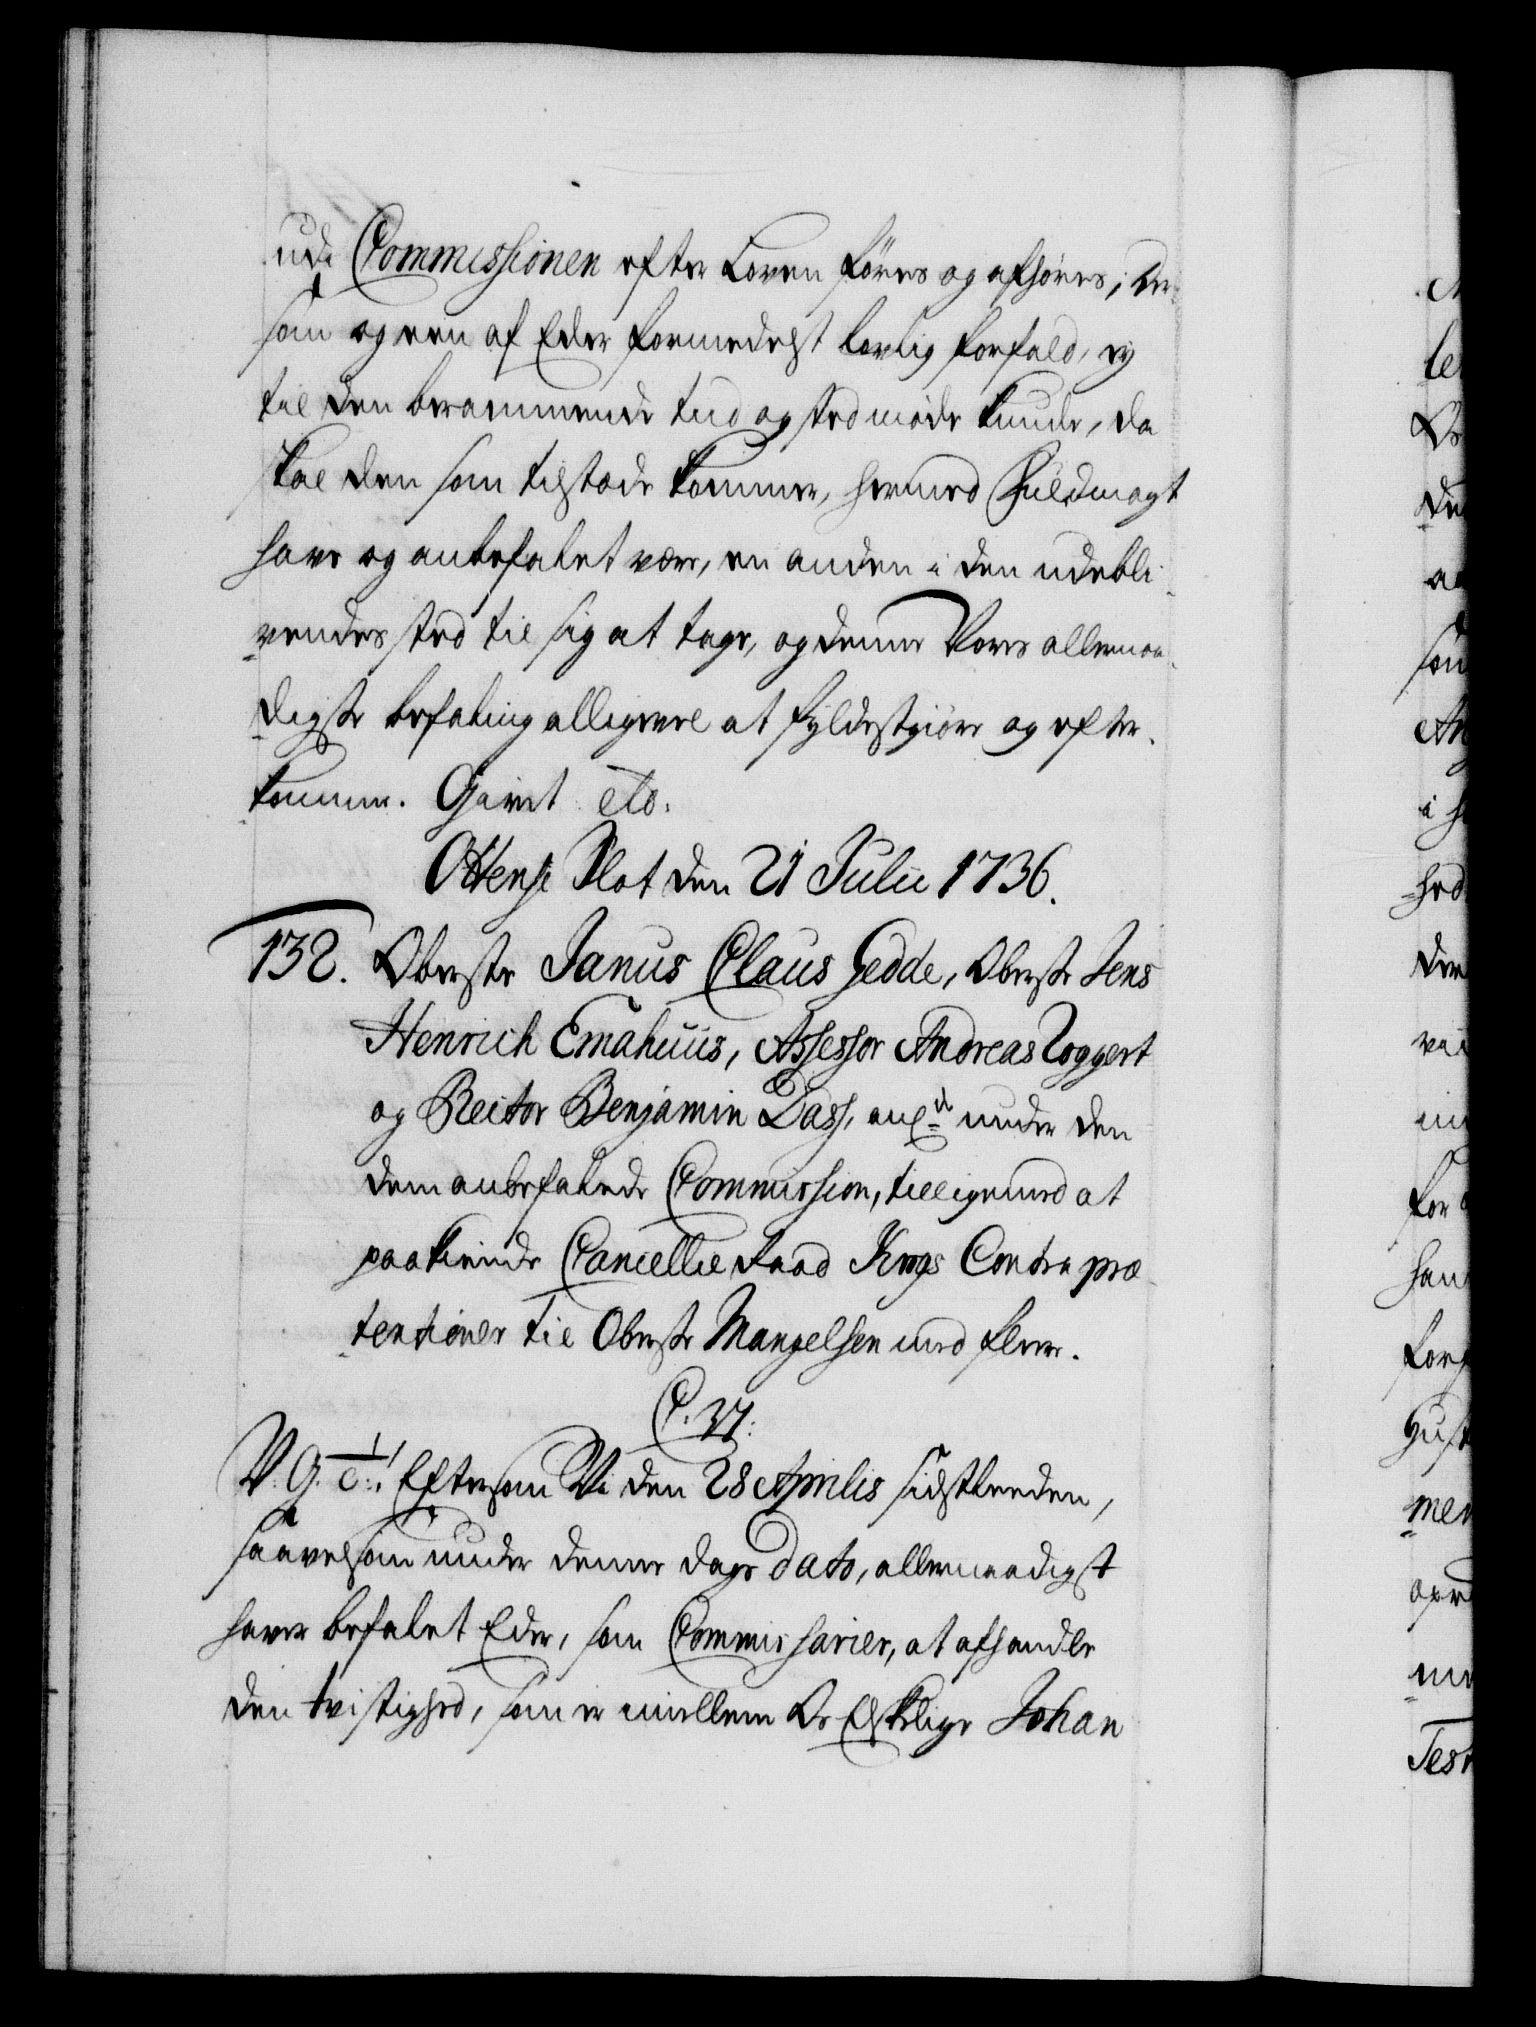 udi Commissionen efter Loven föres og afhöres; Der-
som og een af Eder formedelst lovlig forfald, ej
til den berammende tiid og sted möde kunde, da
skal den som tilstæde kommer, hermed Fuldmagt
have og anbefalet være, en anden i den udebli-
vendes sted til sig at tage, og denne Vores allernaa-
digste befaling alligevel at fyldestgiöre og efter-
komme. Givet etc.
Ottense Slot den 21 Julii 1736.
132. Oberste Janus Claus Gedde, Oberste Jens
Henrich Emahuus, Assessor Andreas Toggert
og Rector Benjamin Dass, ang: under den
dem anbefalede Commission, tilligemed at
paakiende Cancellie Raad Krogs Contra præ-
tentioner til Oberste Mangelsen med flere.
C. VI.
V. G. T. Eftersom Vi den 28 Aprilis sidstleeden,
saavelsom under denne dags dato, allernaadigst
haver befalet Eder, som Commissarier, at afhandle
den tvistighed, som er imellem Os Elskelige Johan